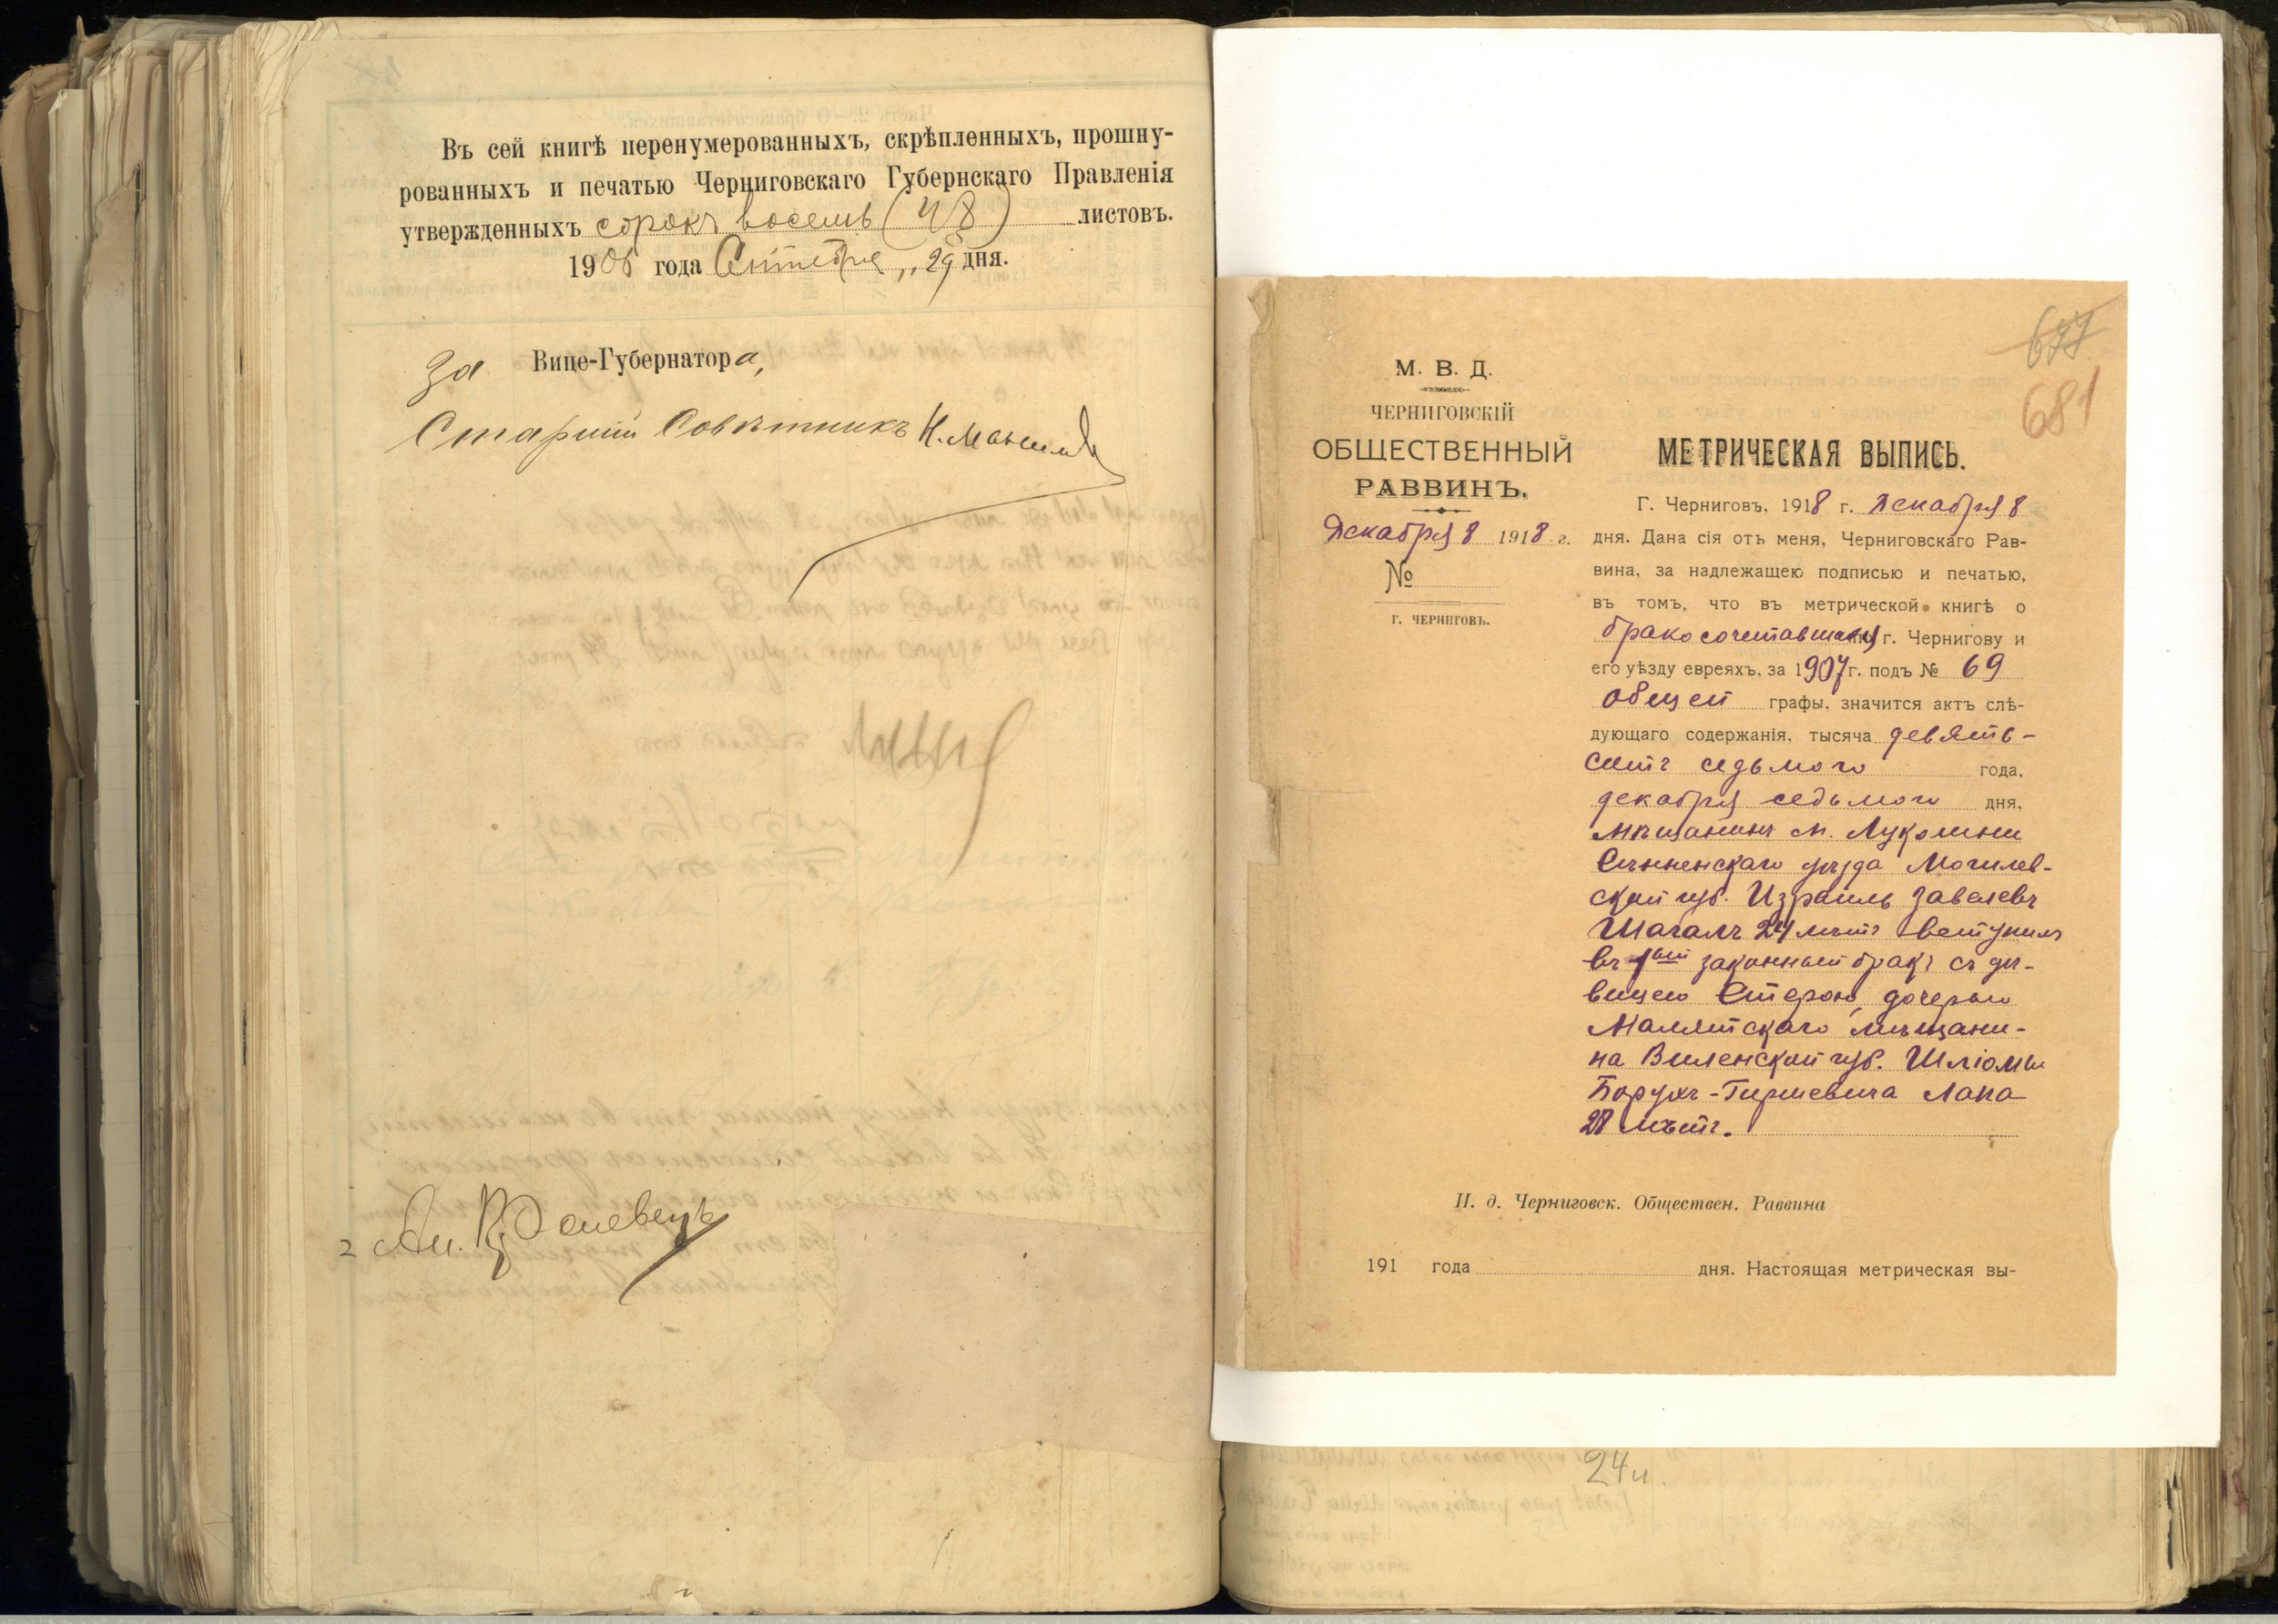 Въ сей книгѣ перенумерованныхъ, скрѣпленныхъ, прошну-
рованныхъ и печатью Черниговскаго Губернскаго Правленія
утвержденныхъ сорокъ восемь (48) листовъ.
1906 года Сентября „29 дня.
За Вице-Губернатора,
Старшій Совѣтникъ Н.
М. В. Д.
ЧЕРНИГОВСКІЙ
ОБЩЕСТВЕННЫЙ
РАВВИНЪ.
Декабря 8 1918 г.
№
Г. ЧЕРНИГОВЪ.
677
681
МЕТРИЧЕСКАЯ ВЫПИСЬ.
Г. Черниговъ, 1918 г. Декабря 8
дня. Дана сія отъ меня, Черниговскаго Рав-
вина, за надлежащею подписью и печатью,
въ томъ, что въ метрической книгѣ о
бракосочетавшихся г. Чернигову и
его уѣзду евреяхъ, за 1907 г. подъ № 69
общей графы, значится актъ слѣ-
дующаго содержанія, тысяча девять-
сотъ седьмого года,
декабря седьмого дня,
мѣщанинъ м. Лукомли
Сѣнненскаго уѣзда Могилев-
ской губ. Израиль Завелевъ
Шагалъ 24 лѣтъ вступилъ
въ 1ый законный бракъ съ дѣ-
вицею Етерою, дочерью
Малятскаго мѣщани-
на Виленской губ. Шліомы
Борухъ-Гиршевича Лапа
28 лѣтъ.
И. д. Черниговск. Обществен. Раввина
191 года дня. Настоящая метрическая вы-
24 л.